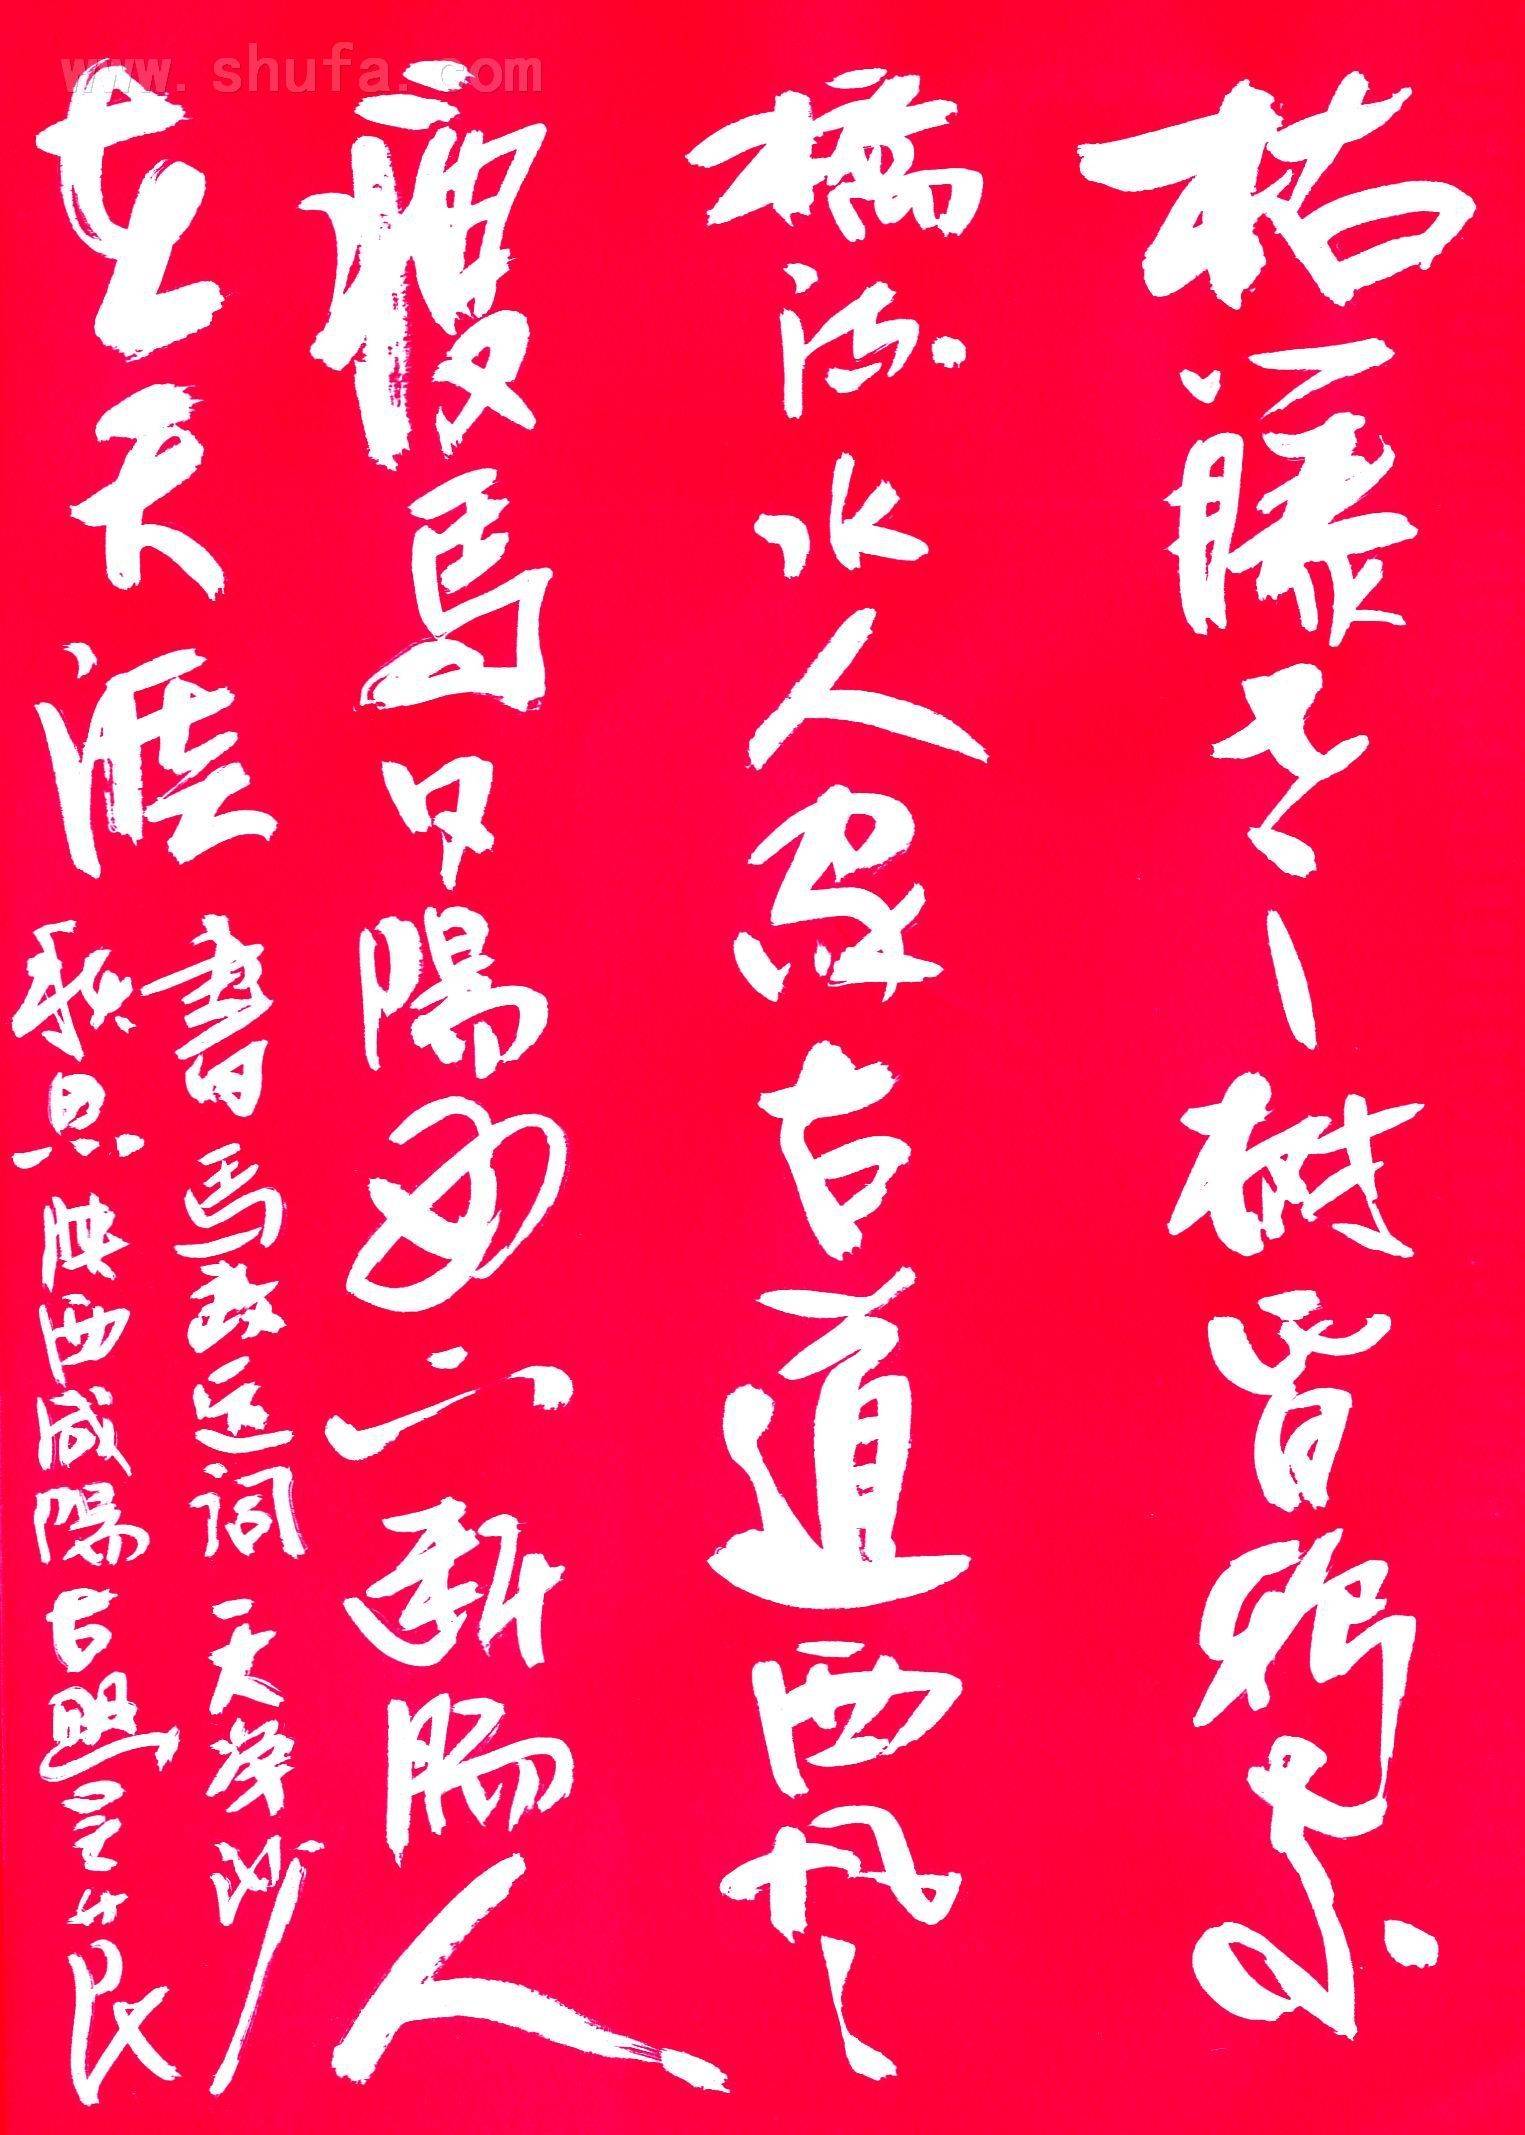 www.shufa.com
枯藤老樹昏鴉小
橋流水人家古道西風
瘦馬夕陽西下斷腸人
在天涯
書馬致遠词 天净沙
秋思 陝西咸陽古